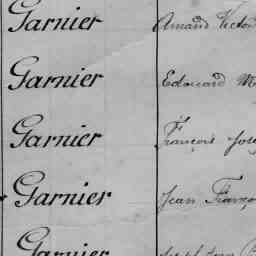 Garnier Amand Victo
Garnier Edouard M
Garnier François Jose
Garnier Jean Franço
Garnier